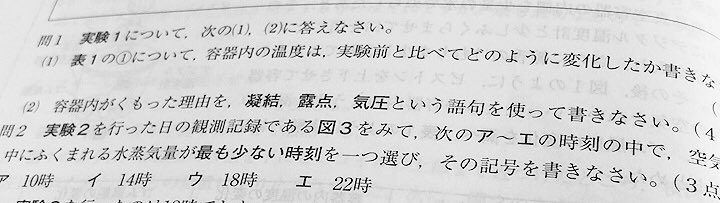 問1 実験1について，次の(1)，(2)に答えなさい。
(1) 表1の①について，容器内の温度は，実験前と比べてどのように変化したか書きな
(2) 容器内がくもった理由を，凝結，露点，気圧という語句を使って書きなさい。(4
問2 実験2を行った日の観測記録である図3をみて，次のア～エの時刻の中で，空気
中にふくまれる水蒸気量が最も少ない時刻を一つ選び，その記号を書きなさい。(3点
ア 10時 イ 14時 ウ 18時 エ 22時